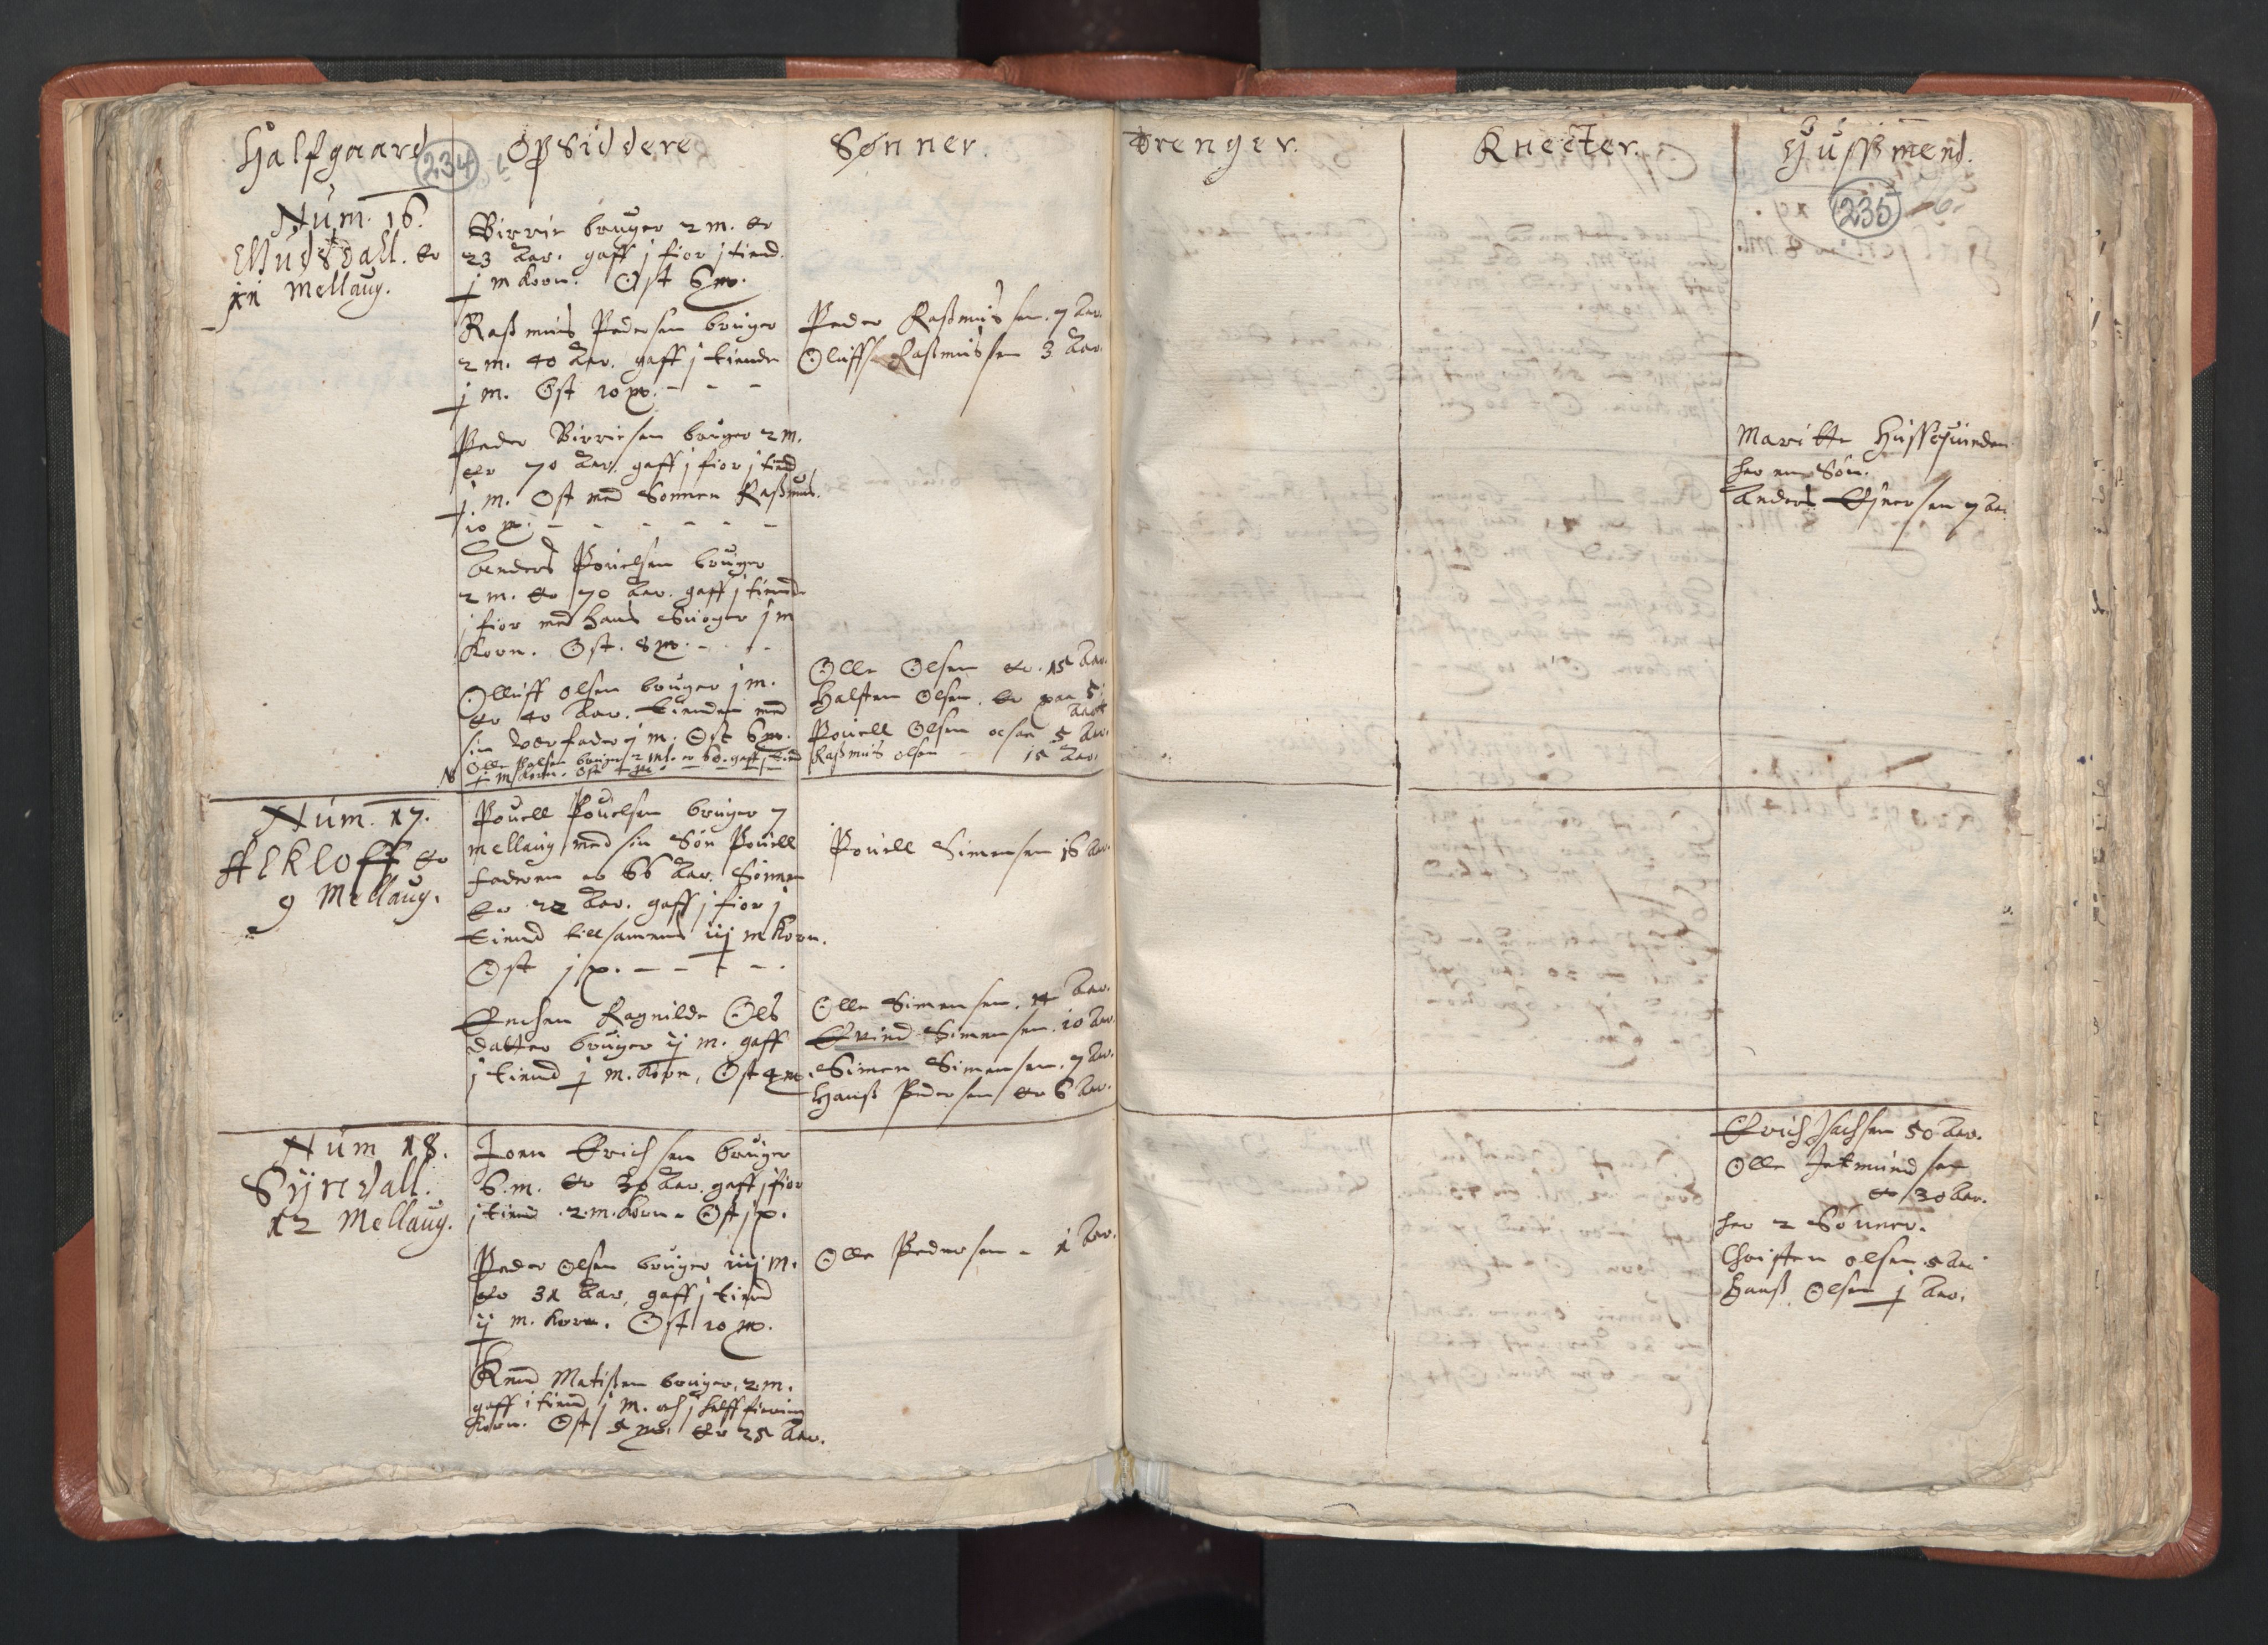 Halfgaard
234
Opsiddere
Sønner.
Drenger.
Kneeter.
Hussmend.
235
Num. 16.
dall. er
Mellaug.
Birrie bruger 2 m. er
23 Aar. gaff j fior j tiend.
j m Korn. Ost 6 m.
Rasmus Pedersen bruger
2 m. 40 Aar. gaff j tiende
j m. Ost 10 m. - - -
Peder Birriesen bruger 2 m.
er 70 Aar. gaff j fior j tiend
j m. Ost med Sønnen Rasmus.
10 m. - - - - - -
Anders Pouelsen bruger
2 m. er 70 Aar. gaff j tiende
j fior med hans Suoger j m
Korn. Ost. 8 m. - - -
Olluff olsen bruger j m.
er 40 Aar. tiender med
sin Værfader j m. Ost 6 m.
Olle olsen bruger 2 ml. er 60. gaff j tiend
j m Korn. Ost
Peder Rasmussen. 7 Aar.
Oluff Rasmussen 3 Aar.
Olle Olsen er. 15 Aar.
Halsten Olsen. er paa 5
Aar
Pouell Olsen ocsaa 5 Aar.
Rasmus olsen - 15 Aar.
Maritte Hussquinden
her en Søn.
Anders Ejnersen 7 Aar.
Num. 17.
Alkloff er
9 Mellaug.
Pouell Pouelsen bruger 7
mellaug med sin Søn Pouell
Faderen er 66 Aar. Sønnen
er 22 Aar. gaff j fior j
tiend tillsamens iij m Korn.
Ost j p. - - - - -
Enchen Ragnilde Ols
datter bruger ij m. gaff
j tiend j m. Korn, Ost 4 m.
Pouell Simensen 16 Aar.
Olle Simensen. 14 Aar.
Erind Simensen. 10 Aar.
Simen Simensen. 7 Aar.
Hanss Pedersen er 6 Aar.
Num 18.
Syndall.
12 Mellaug.
Joen Erichsen bruger
6. m. er 30 Aar. gaff j fior
j tiend. 2. m. Korn - Ost j p.
Peder Olsen bruger iiij m.
er 31 Aar, gaff j tiend
ij m. Korn. Ost 10 m.
Knud Matissen bruger, 2 m.
gaff i tiend j m. och j halff fiering
Korn. Ost 5 m. er 25 Aar.
Olle Pedersen - 1 Aar.
Erich Isachsen 50 Aar.
Olle Jetmundsen
er 30 Aar.
her 2 Sønner.
Christen olsen. 5 Aar
Hanss Olsen j Aar.